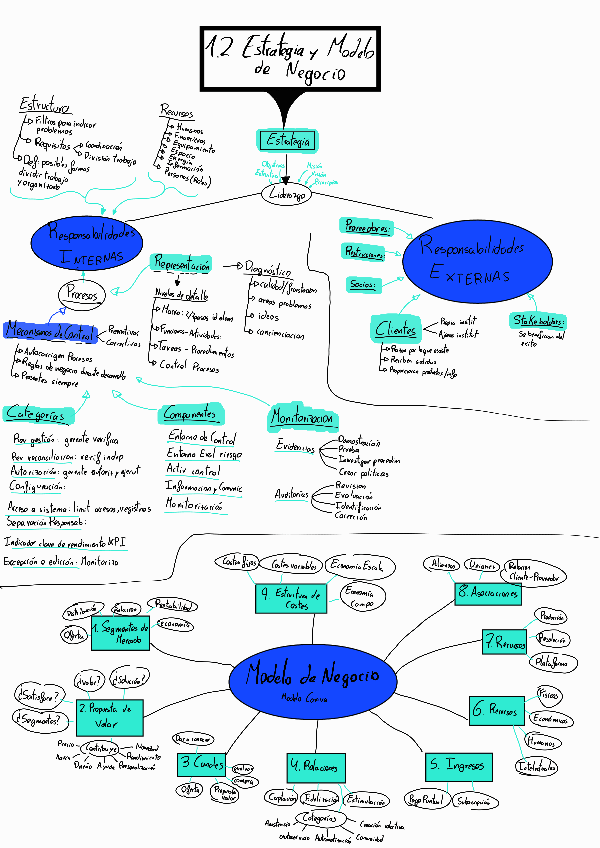 1.2 Estrategia y Modelo
de Negocio
Estrategia
Misión
Visión
Liderazgo
Estructura
Filtros para indicar
problemas
Requisitos
Coordinación
División trabajo
Def. posibles formas
dividir trabajo
y organizarlo
Recursos
Humanos
Financieros
Equipamiento
Espacio
Energía
Información
Personas (Roles)
Responsabilidades
INTERNAS
Procesos
Mecanismos de Control
Autocorrigen Procesos
Reglas de negocio durante desarrollo
Presentes siempre
Representación
Niveles de detalle
Macro:
Funciones - Actividades:
Tareas - Procedimientos
Control Procesos
Diagnóstico
calidad/frustración
areas problemas
ideas
Proveedores:
Socios:
Responsabilidades
EXTERNAS
Clientes
Pagan por lograr
Reciben
Proporciona producto/info
Stakeholders:
Se benefician del
exito
Categorías
Por gestión: gerente verifica
Por reconciliación: verif indep
Autorización: gerente autoriz y ejecut
Configuración:
Acceso a sistema: limit accesos, registros
Separación Responsab:
Indicador clave de rendimiento KPI
Excepción o edición: Monitorizo
Componentes
Entorno de Control
Entorno Eval riesgo
Activ control
Informacion y Comunic
Monitorización
Monitorización
Evidencias
Demostración
Prueba
Investigar
Crear políticas
Auditorías
Revisión
Evaluación
Identificación
Corrección
Modelo de Negocio
Modelo Canvas
1. Segmentos de
Mercado
Distribución
Relación
Rentabilidad
Economía
Oferta
2. Propuesta de
Valor
¿Satisface?
¿Valor?
¿Solución?
¿Segmentos?
Contribuye
Precio
Marca
Diseño
Ayuda
Personalización
Rendimiento
Novedad
3 Canales
Dar a conocer
evaluar
compra
Oferta
Propuesta
Valor
4. Relaciones
Captación
Fidelización
Estimulación
Categorías
Asistencia
Autoservicio
Automatización
Comunidad
Creación colectiva
5. Ingresos
Pago Puntual
Subscripción
6. Recursos
Físicos
Económicos
Humanos
Intelectuales
7. Recursos
Producción
Resolución
Plataforma
8. Asociaciones
Alianzas
Relación
Cliente-Proveedor
9. Estructura de
Costes
Costes fijos
Costes variables
Economía Escala
Economía
Campo